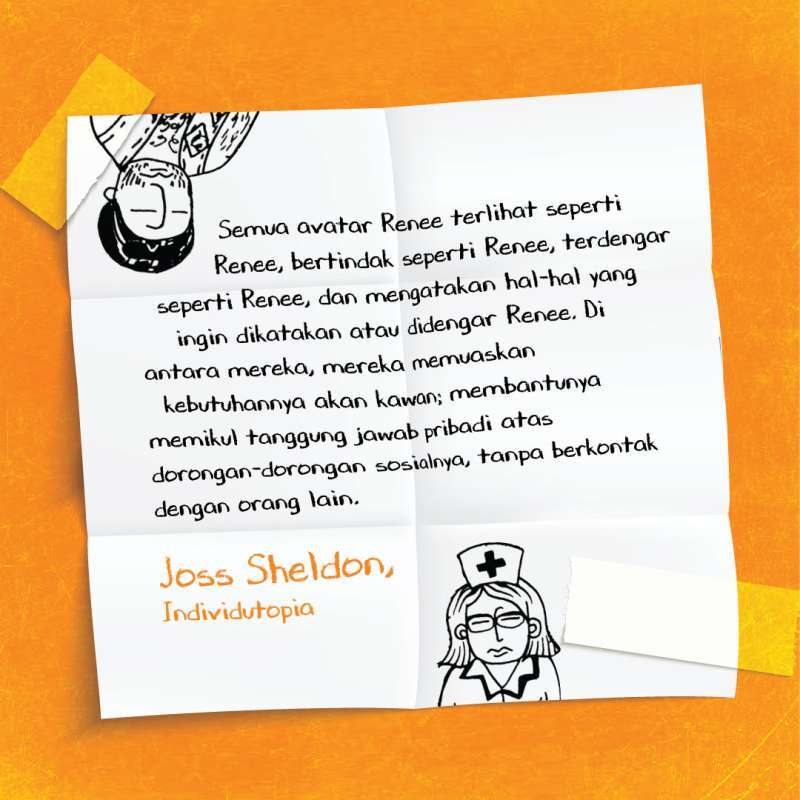 Semua avatar Renee terlihat seperti
Renee, bertindak seperti Renee, terdengar
seperti Renee, dan mengatakan hal-hal yang
ingin dikatakan atau didengar Renee. Di
antara mereka, mereka memuaskan
kebutuhannya akan kawan; membantunya
memikul tanggung jawab pribadi atas
dorongan-dorongan sosialnya, tanpa berkontak
dengan orang lain.
Joss Sheldon,
Individutopia